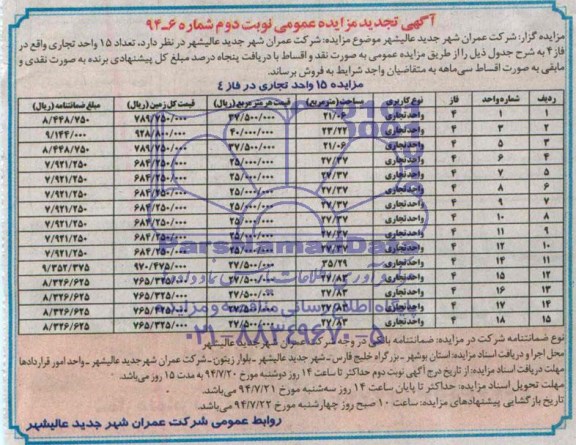 آگهی تجدید مزایده عمومی نوبت دوم شماره ۶-۹۴
مزایده گزار: شرکت عمران شهر جدید عالیشهر موضوع مزایده: شرکت عمران شهر جدید عالیشهر در نظر دارد، تعداد ۱۵ واحد تجاری واقع در
فاز ۴ به شرح جدول ذیل را از طریق مزایده عمومی به صورت نقد و اقساط با دریافت پنجاه درصد مبلغ کل پیشنهادی برنده به صورت نقدی و
مابقی به صورت اقساط سی ماهه به متقاضیان واجد شرایط به فروش برساند.
مزایده ۱۵ واحد تجاری در فاز ۴
ردیف شماره واحد فاز نوع کاربری مساحت (مترمربع) قیمت هر متر مربع (ریال) قیمت کل زمین (ریال) مبلغ ضمانتنامه (ریال)
۱ ۱ ۴ واحد تجاری ۲۱/۰۶ ۳۷/۵۰۰/۰۰۰ ۷۸۹/۷۵۰/۰۰۰ ۸/۴۴۸/۷۵۰
۲ ۳ ۴ واحد تجاری ۲۳/۲۲ ۴۰/۰۰۰/۰۰۰ ۹۲۸/۸۰۰/۰۰۰ ۹/۱۴۴/۰۰۰
۳ ۵ ۴ واحد تجاری ۲۱/۰۶ ۳۷/۵۰۰/۰۰۰ ۷۸۹/۷۵۰/۰۰۰ ۸/۴۴۸/۷۵۰
۴ ۶ ۴ واحد تجاری ۲۷/۳۷ ۲۵/۰۰۰/۰۰۰ ۶۸۴/۲۵۰/۰۰۰ ۷/۹۲۱/۲۵۰
۵ ۷ ۴ واحد تجاری ۲۷/۳۷ ۲۵/۰۰۰/۰۰۰ ۶۸۴/۲۵۰/۰۰۰ ۷/۹۲۱/۲۵۰
۶ ۸ ۴ واحد تجاری ۲۷/۳۷ ۲۵/۰۰۰/۰۰۰ ۶۸۴/۲۵۰/۰۰۰ ۷/۹۲۱/۲۵۰
۷ ۹ ۴ واحد تجاری ۲۷/۳۷ ۲۵/۰۰۰/۰۰۰ ۶۸۴/۲۵۰/۰۰۰ ۷/۹۲۱/۲۵۰
۸ ۱۰ ۴ واحد تجاری ۲۷/۳۷ ۲۵/۰۰۰/۰۰۰ ۶۸۴/۲۵۰/۰۰۰ ۷/۹۲۱/۲۵۰
۹ ۱۱ ۴ واحد تجاری ۲۷/۳۷ ۲۵/۰۰۰/۰۰۰ ۶۸۴/۲۵۰/۰۰۰ ۷/۹۲۱/۲۵۰
۱۰ ۱۲ ۴ واحد تجاری ۲۷/۳۷ ۲۵/۰۰۰/۰۰۰ ۶۸۴/۲۵۰/۰۰۰ ۷/۹۲۱/۲۵۰
۱۱ ۱۴ ۴ واحد تجاری ۳۵/۲۹ ۲۷/۵۰۰/۰۰۰ ۹۷۰/۴۷۵/۰۰۰ ۹/۳۵۲/۳۷۵
۱۲ ۱۵ ۴ واحد تجاری ۲۷/۸۳ ۲۷/۵۰۰/۰۰۰ ۷۶۵/۳۲۵/۰۰۰ ۸/۳۲۶/۶۲۵
۱۳ ۱۶ ۴ واحد تجاری ۲۷/۸۳ ۲۷/۵۰۰/۰۰۰ ۷۶۵/۳۲۵/۰۰۰ ۸/۳۲۶/۶۲۵
۱۴ ۱۷ ۴ واحد تجاری ۲۷/۸۳ ۲۷/۵۰۰/۰۰۰ ۷۶۵/۳۲۵/۰۰۰ ۸/۳۲۶/۶۲۵
۱۵ ۱۸ ۴ واحد تجاری ۲۷/۸۳ ۲۷/۵۰۰/۰۰۰ ۷۶۵/۳۲۵/۰۰۰ ۸/۳۲۶/۶۲۵
نوع ضمانتنامه شرکت در مزایده: ضمانتنامه بانکی در وجه شرکت عمران شهر جدید عالیشهر
محل اجرا و دریافت اسناد مزایده: استان بوشهر - بزرگراه خلیج فارس - شهر جدید عالیشهر - بلوار زیتون - شرکت عمران شهر جدید عالیشهر - واحد امور قراردادها
مهلت دریافت اسناد مزایده: از تاریخ درج آگهی نوبت دوم حداکثر تا ساعت ۱۴ روز دوشنبه مورخ ۹۴/۷/۲۰ به مدت ۱۵ روز می‌باشد.
مهلت تحویل اسناد مزایده: حداکثر تا پایان ساعت ۱۴ روز سه‌شنبه مورخ ۹۴/۷/۲۱ می‌باشد.
تاریخ بازگشایی پیشنهادهای مزایده: ساعت ۱۰ صبح روز چهارشنبه مورخ ۹۴/۷/۲۲ می‌باشد.
روابط عمومی شرکت عمران شهر جدید عالیشهر